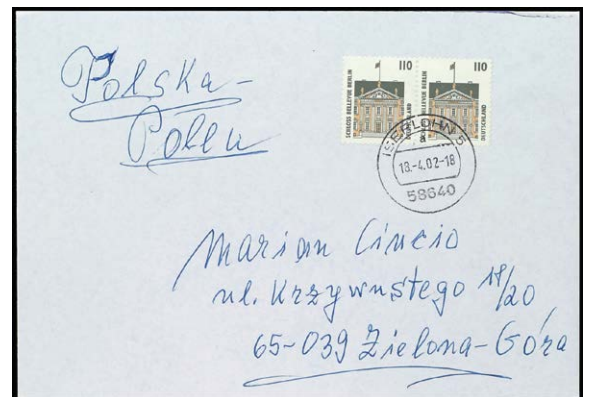 Polska-
Polen
110 110
SCHLOSS BELLEVUE BERLIN
DEUTSCHLAND
SCHLOSS BELLEVUE BERLIN
DEUTSCHLAND
ISERLOHN 5
18.-4.02-18
58640
Marian Cincio
ul. Krzywustego 18/20
65-039 Zielona-Góra